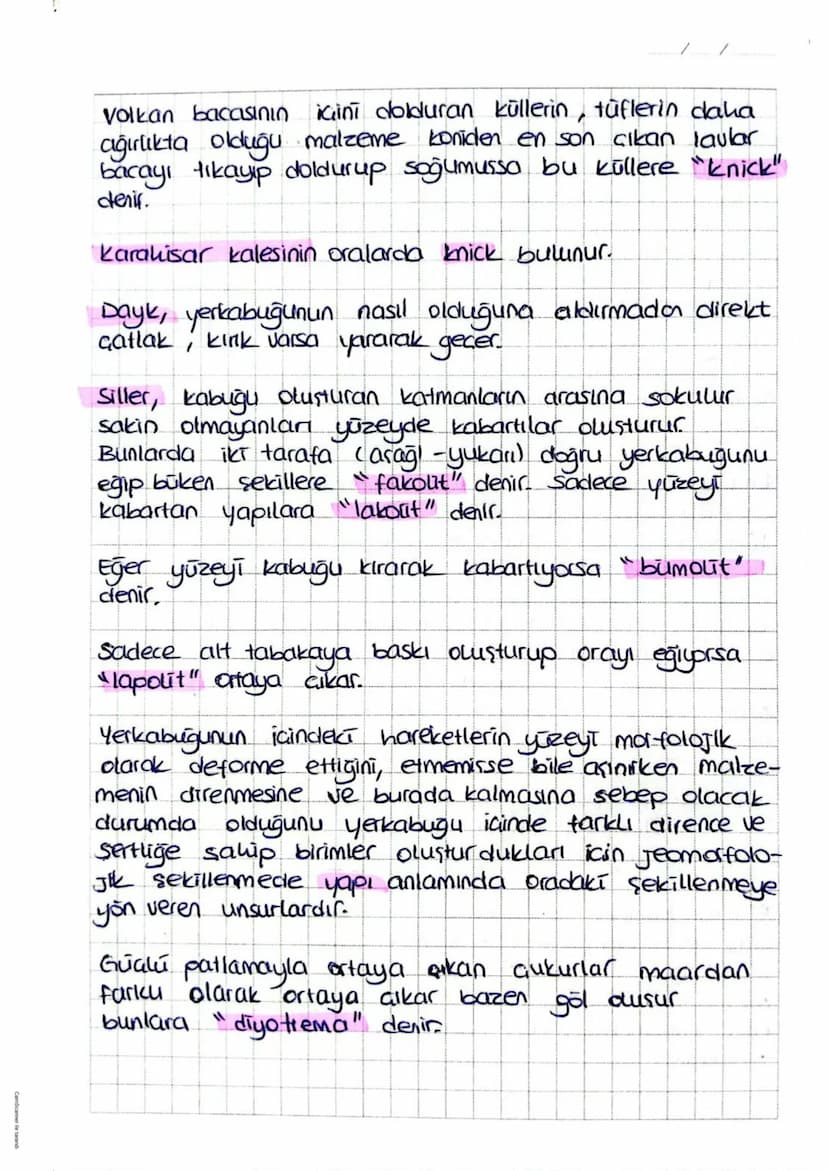 Volkan bacasının içini dolduran küllerin, tüflerin daha
ağırlıkta olduğu malzeme koniden en son çıkan lavlar
bacayı tıkayıp doldurup soğumuşsa bu küllere "knick"
denir.
Karahisar kalesinin oralarda knick bulunur.
Dayk, yerkabuğunun nasıl olduğuna aldırmadan direkt
çatlak, kırık varsa yararak geçer.
Siller, kabuğu oluşturan katmanların arasına sokulur
sakin olmayanları yüzeyde kabartılar oluşturur.
Bunlarda iki tarafa (aşağı-yukarı) doğru yerkabuğunu
eğip büken şekillere "fakolit" denir. Sadece yüzeyi
kabartan yapılara "lakolit" denir.
Eğer yüzeyi kabuğu kırarak kabartıyorsa "bümolit"
denir.
Sadece alt tabakaya baskı oluşturup orayı eğiyorsa
"lapolit" ortaya çıkar.
Yerkabuğunun içindeki hareketlerin yüzeyi morfolojik
olarak deforme ettiğini, etmemisse bile aşınırken malze-
menin direnmesine ve burada kalmasına sebep olacak
durumda olduğunu yerkabuğu içinde farklı dirence ve
sertliğe sahip birimler oluşturdukları için jeomorfolo-
jik şekillenmede yapı anlamında oradaki şekillenmeye
yön veren unsurlardır.
Güçlü patlamayla ortaya çıkan çukurlar maardan
farklı olarak ortaya çıkar bazen göl olusur
bunlara "diyotrema" denir.
CamScanner ile tarandı